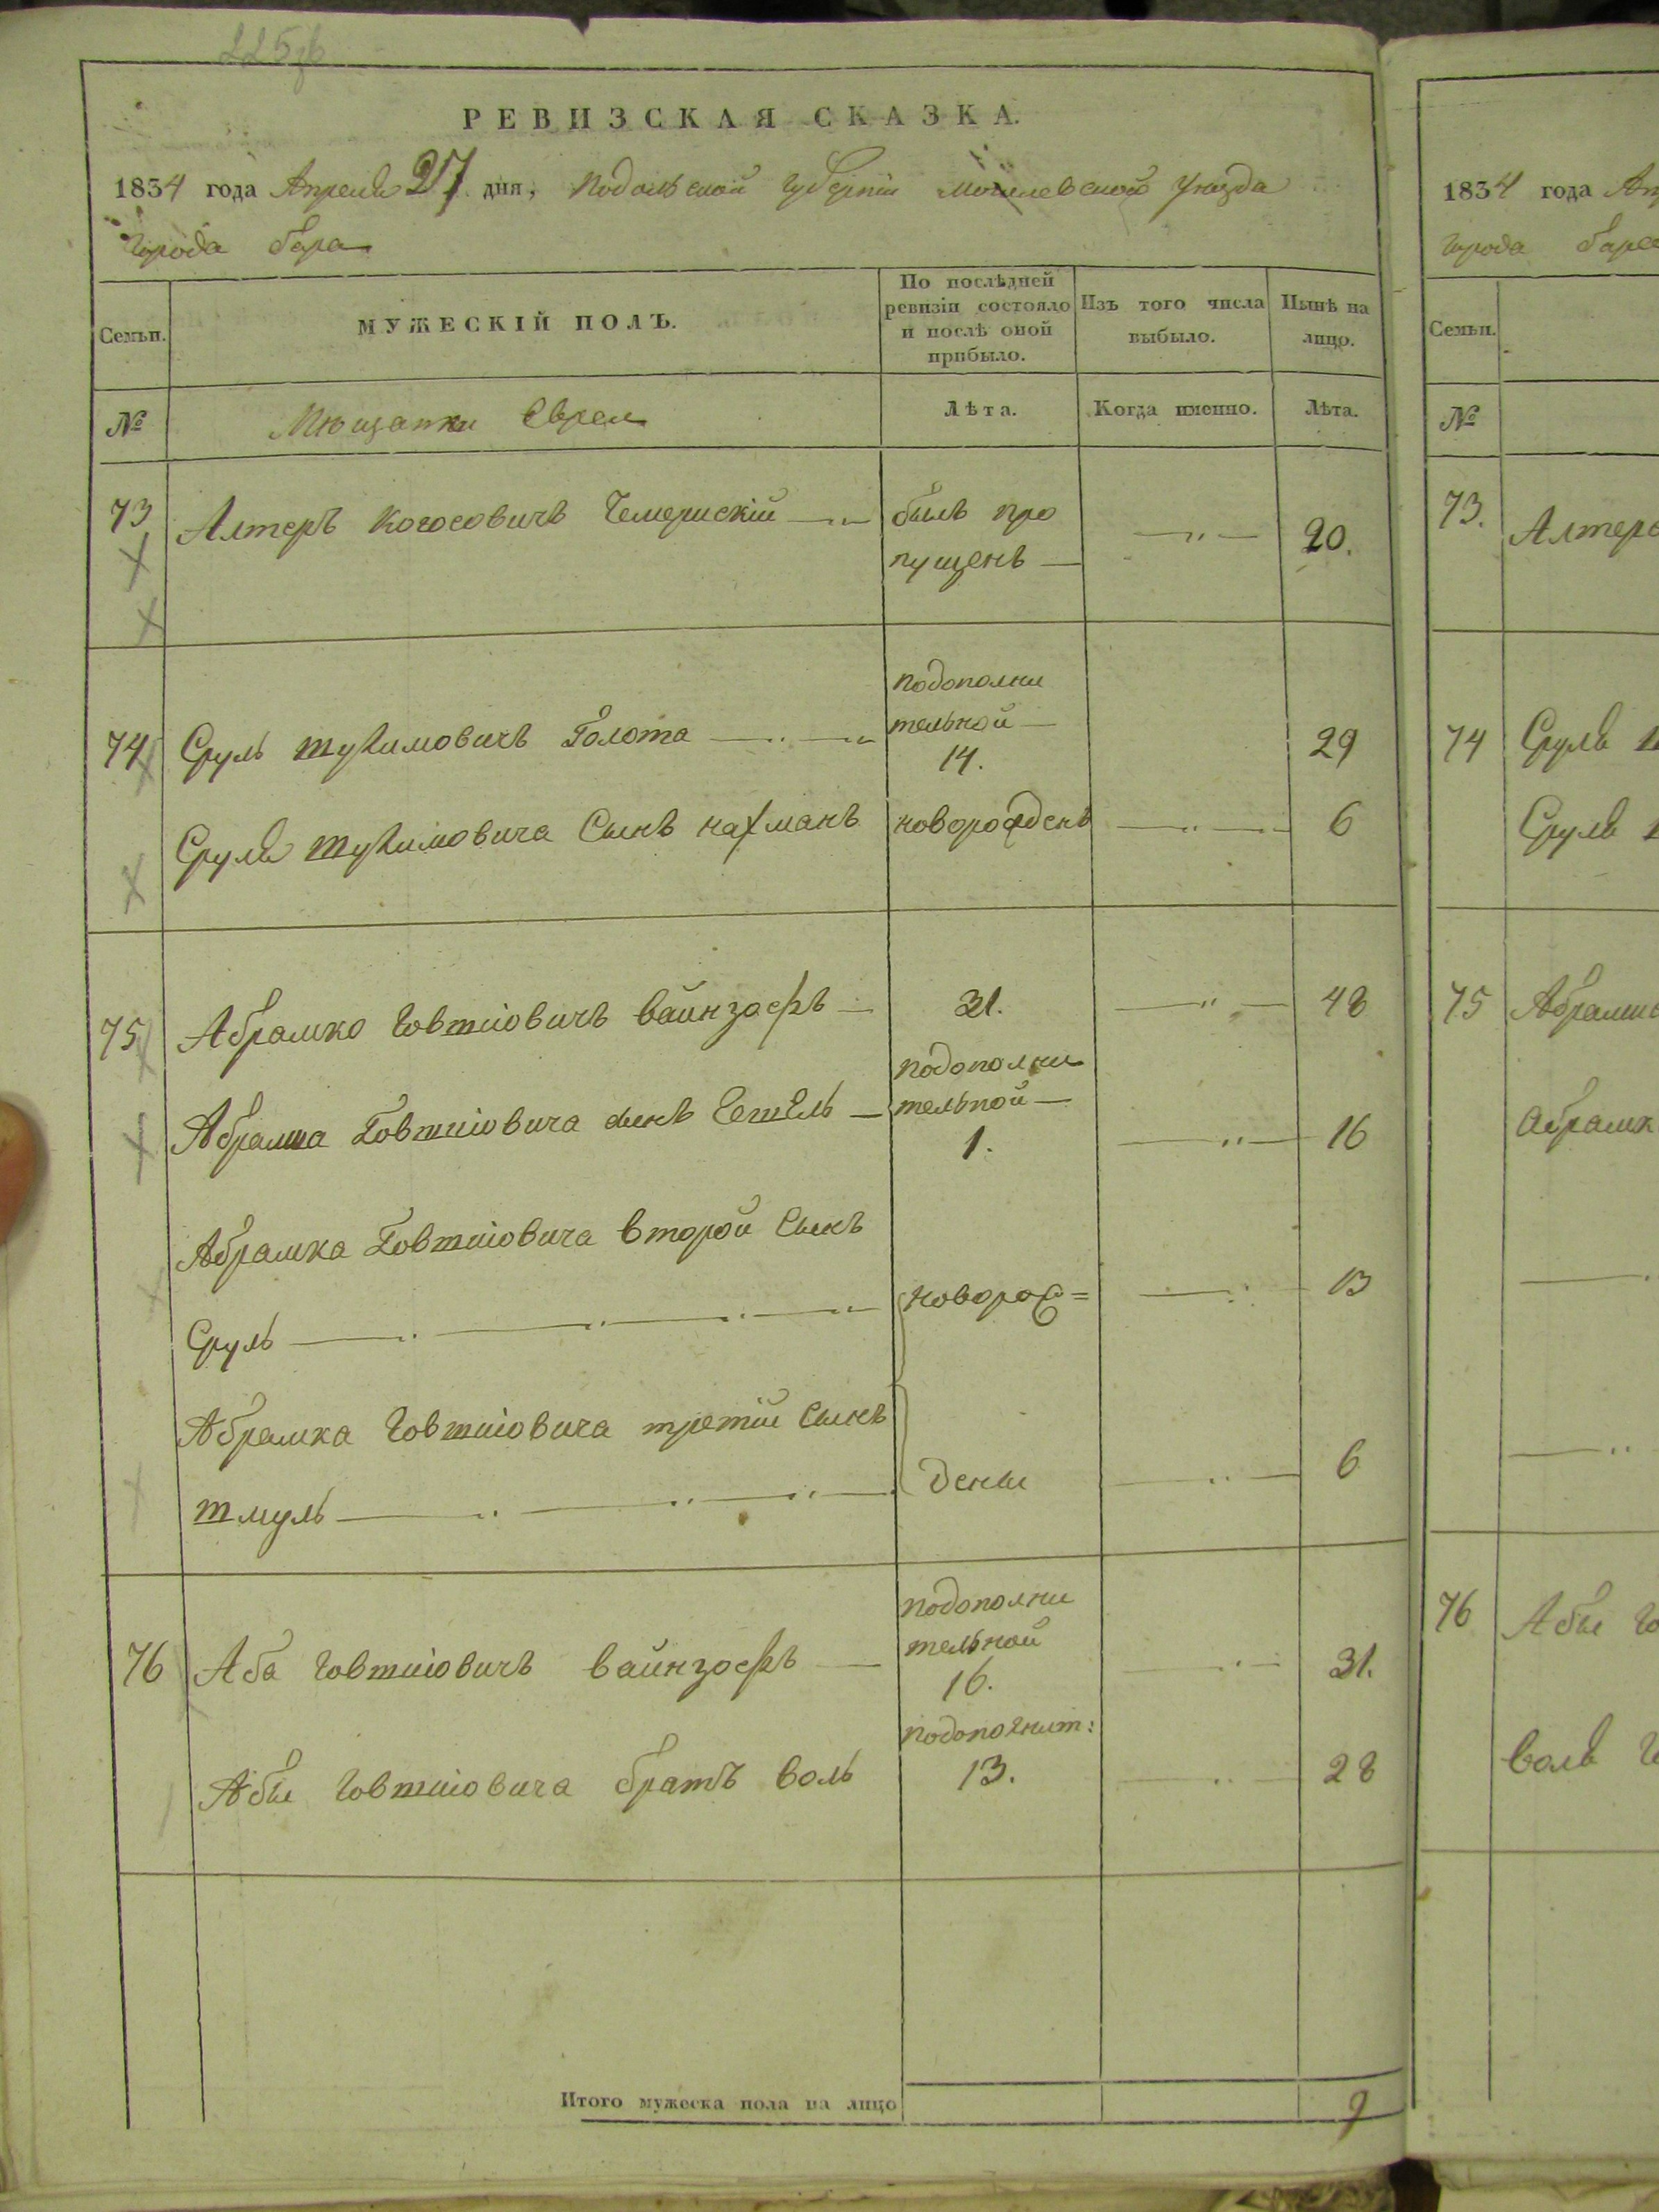 225об
РЕВИЗСКАЯ СКАЗКА.
1834 года Апреля 27 дня, Подольской губерніи могилевской уезда
города бара
Семьи.
МУЖЕСКІЙ ПОЛЪ.
По послѣдней ревизіи состояло и послѣ оной прибыло.
Изъ того числа выбыло.
Нынѣ на лицо.
№
Мющанки Евреи
Лѣта.
Когда именно.
Лѣта.
73 Алтеръ Когосовичъ Чемерискій былъ про 20.
пущенъ
подополни
74 Сруль Шулимовичъ Голота тельной 29
14.
Сруля Шулимовича Сынъ нахманъ новорожденъ 6
75 Абрамко Говшіовичъ вайнзофъ 31. 48
подополни
Абрамка Говшіовича сынъ тельной 16
1.
Абрамка Говшіовича второй Сынъ
Сруль новорож= 13
Абрамка Говшіовича третій Сынъ
Шмуль дены 6
подополни
76 Аба Говшіовичъ вайнзофъ тельной 31.
16.
подополнит:
Абы Говшіовича братъ воль 13. 28
Итого мужеска пола на лицо 9
1834 года Ап
города бара
Семьи.
№
73. Алтера
74 Сруля
Сруля
75 Абрамк
Абрамк
76 Абы Го
воля Г